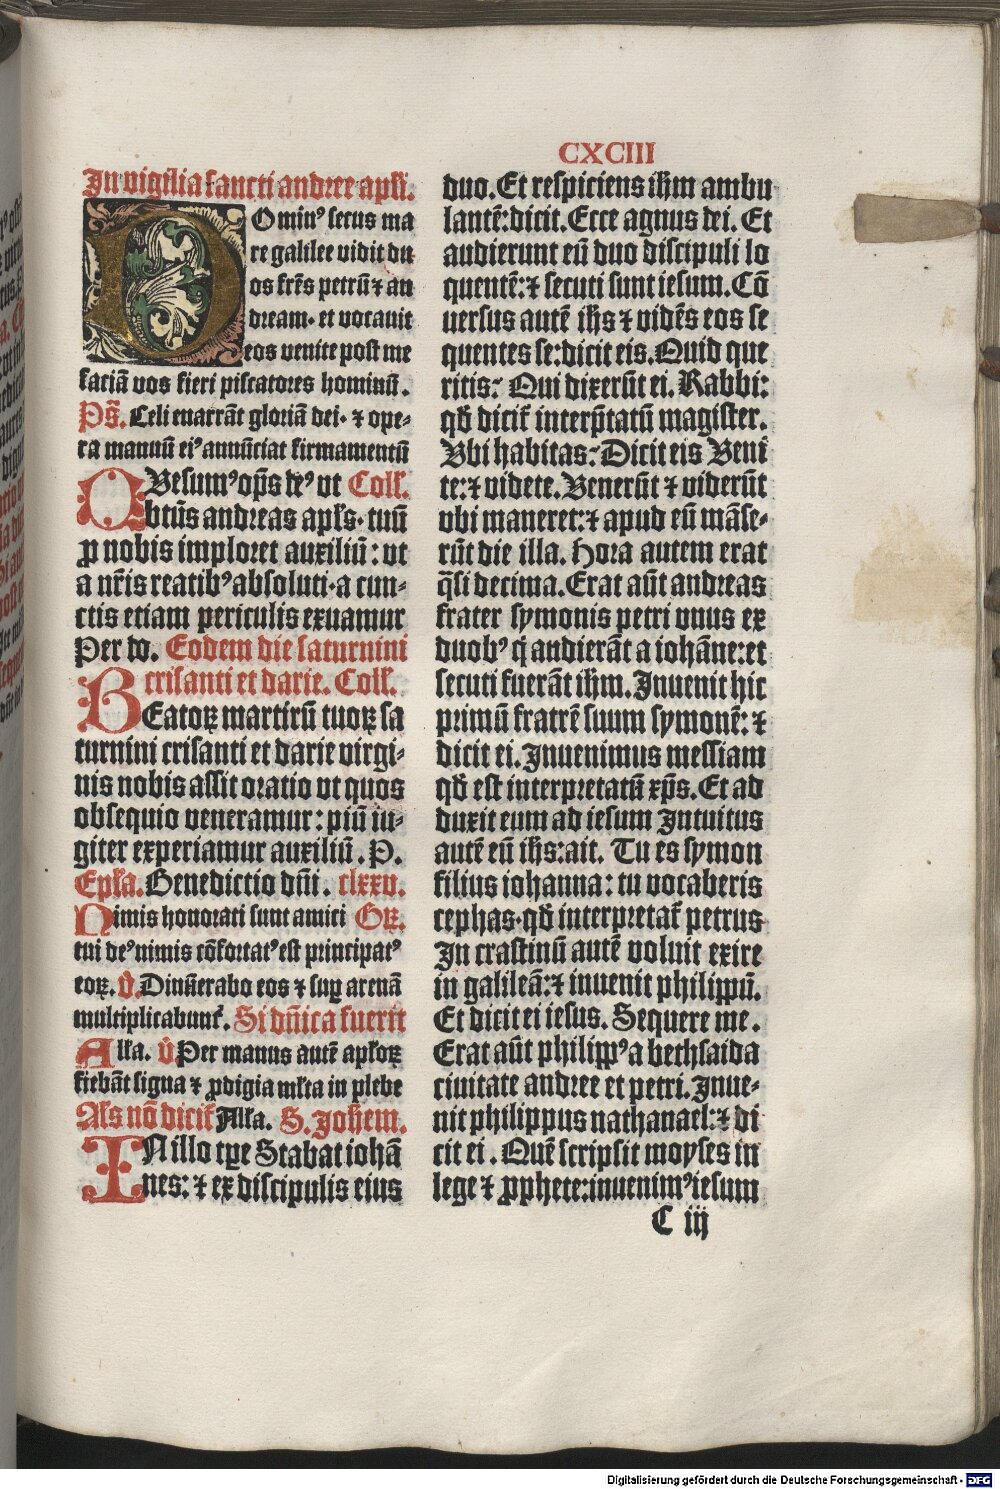 CXCIII
In vigilia sancti andree apl̄i.
DOminꝰ secus ma
re galilee vidit du
os fr̄es petrū ⁊ an
dream· et vocauit
eos venite post me
faciā vos fieri piscatores hominū.
Pš. Celi enarrāt gloriā dei· ⁊ ope-
ra manuū eiꝰ annūciat firmamentū
QVesumꝰ op̄s deꝰ vt Coll'.
btūs andreas apl's· tuū
ꝓ nobis imploret auxiliū: vt
a nr̄is reatibꝰ absoluti·a cun-
ctis etiam periculis exuamur
Per do. Eodem die saturnini
crisanti et darie. Coll'.
BEatoꝝ martirū tuoꝝ sa
turnini crisanti et darie virgi-
nis nobis assit oratio vt quos
obsequio veneramur: piū iu-
giter experiamur auxiliū. P.
Epl'a. Benedictio dn̄i. clxxv.
Nimis honorati sunt amici Gꝝ.
tui deꝰ nimis cōfortatꝰ est principatꝰ
eoꝝ. v̄. Dinūerabo eos ⁊ suꝑ arenā
multiplicabunt'. Si dn̄ica fuerit
All'a. v̄ Per manus autē apl'oꝝ
fiebāt signa ⁊ ꝓdigia ml'ta in plebe
Als nō dicit' All'a. S. Johem.
IN illo tꝑe Stabat iohā
nes: ⁊ ex discipulis eius
duo. Et respiciens ihm ambu
lantē: dicit. Ecce agnus dei. Et
audierunt eū duo discipuli lo
quentē: ⁊ secuti sunt iesum. Cō
uersus autē ihs ⁊ vidēs eos se
quentes se: dicit eis. Quid que
ritis? Qui dixerūt ei. Rabbi:
qd̄ dicit' interp̄tatū magister.
Vbi habitas? Dicit eis Veni
te: ⁊ videte. Venerūt ⁊ viderūt
vbi maneret: ⁊ apud eū māse-
rūt die illa. Hora autem erat
q̄si decima. Erat aūt andreas
frater symonis petri vnus ex
duobꝰ q̄ audierāt a iohāne: et
secuti fuerāt ihm. Inuenit hic
primū fratrē suum symonē: ⁊
dicit ei. Inuenimus messiam
qd̄ est interpretatū xp̄s. Et ad
duxit eum ad iesum Intuitus
autē eū ihs: ait. Tu es symon
filius iohanna: tu vocaberis
cephas· qd̄ interpretat' petrus
In crastinū autē voluit exire
in galileā: ⁊ inuenit philippū.
Et dicit ei iesus. Sequere me.
Erat aūt philippꝰ a bethsaida
ciuitate andree et petri. Inue-
nit philippus nathanael: ⁊ di
cit ei. Quē scripsit moyses in
lege ⁊ ꝓphete: inuenimꝰ iesum
C iij
Digitalisierung gefördert durch die Deutsche Forschungsgemeinschaft - DFG